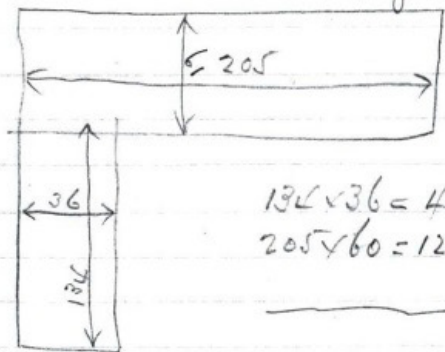 205
36
134
134×36=4
205×60=12